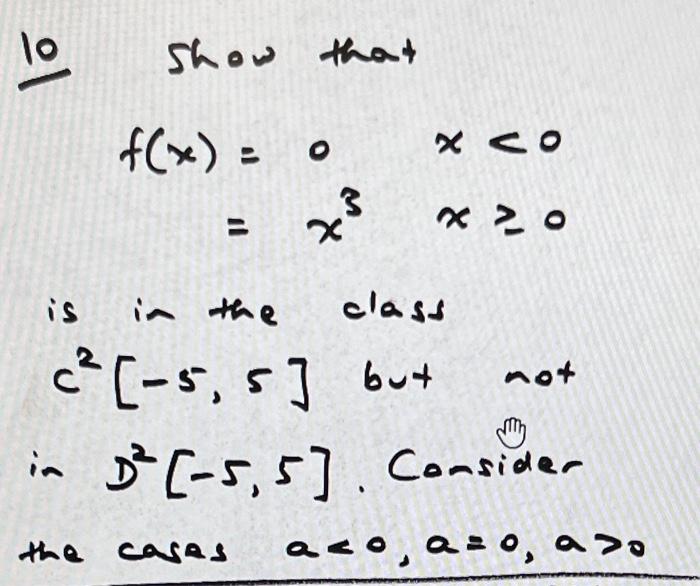 10 Show that
f(x) = 0 x < 0
= x³ x ≥ 0
is in the class
C² [-5, 5] but not
in D² [-5, 5]. Consider
the cases a<0, a=0, a>0